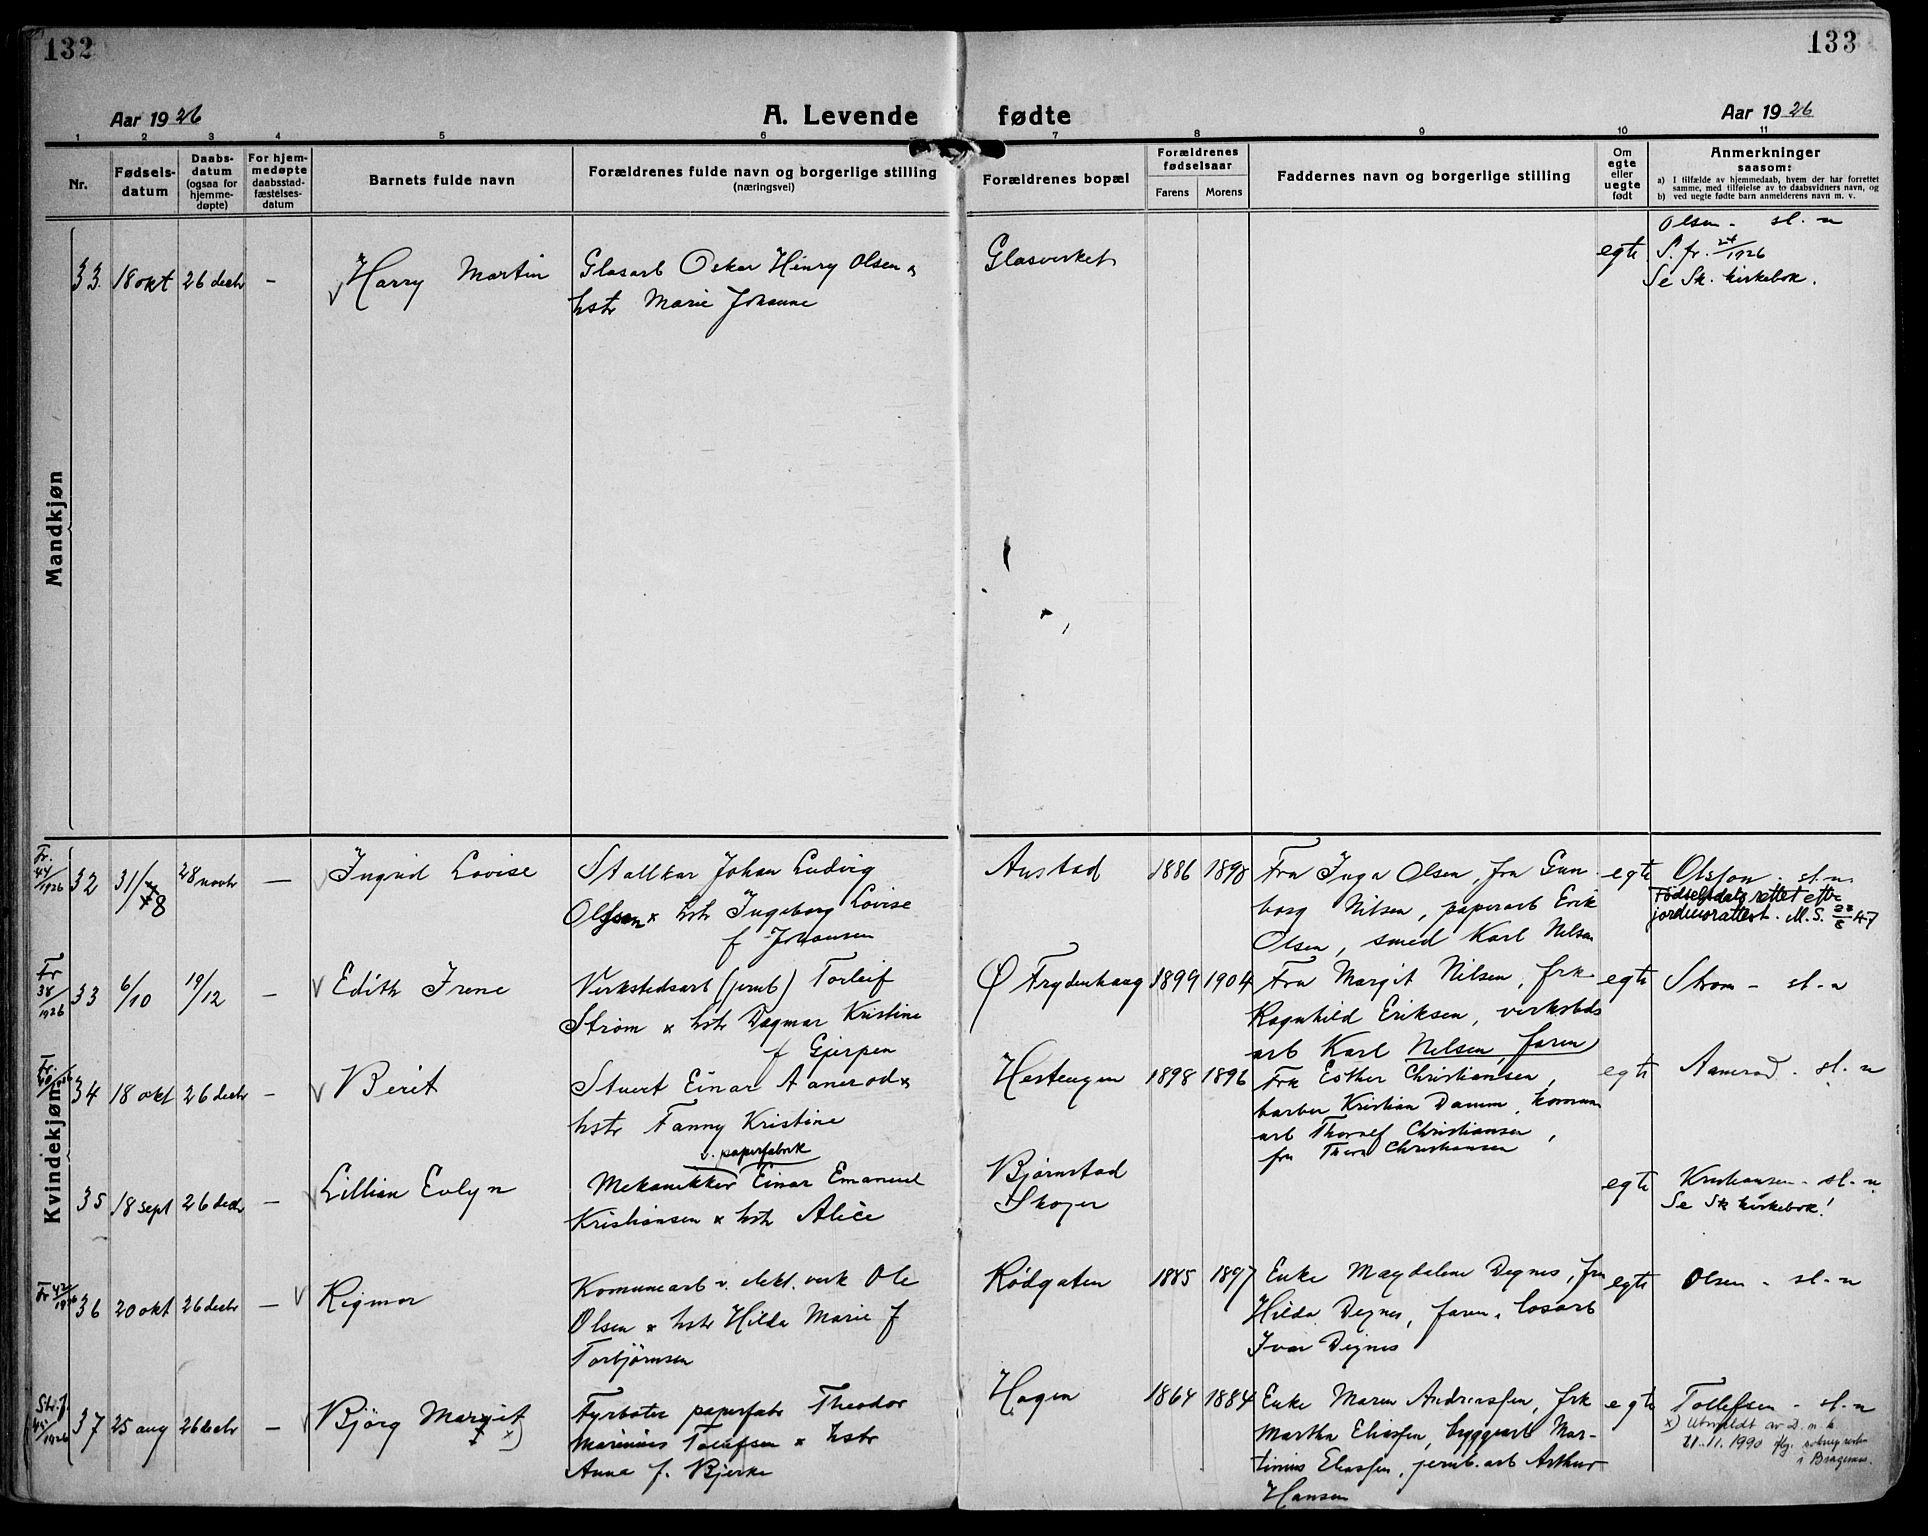 132
133
Aar 1926
A. Levende fødte
Aar 1926
1 2 3 4 5 6 7 8 9 10 11
Nr.
Fødsels-
datum
Daabs-
datum
(ogsaa for
hjemme-
døpte)
For hjem-
medøpte
daabsstad-
fæstelses-
datum
Barnets fulde navn
Forældrenes fulde navn og borgerlige stilling
(næringsvei)
Forældrenes bopæl
Forældrenes
fødselsaar
Farens
Morens
Faddernes navn og borgerlige stilling
Om
egte
eller
uegte
født
Anmerkninger
saasom:
a) I tilfælde av hjemmedaab, hvem der har forrettet
samme, med tilføielse av to daabsvidners navn, og
b) ved uegte fødte barn anmelderens navn m. v.
Mandkjøn
33. 18 okt 26 decbr –
Harry Martin
Glasarb Oskar Henry Olsen &
hstr Marie Johanne
Glasverket
egte
Olsen - sl. n
S. fr. 24/1926
Se Sk. kirkebok.
Kvindekjøn
Fr.
44/1926
32 31/8 28 novbr —
Ingrid Lovise
Stallkar Johan Ludvig
Olsson & hstr Ingeborg Lovise
f Johansen
Austad
1886 1898
Fru Inga Olsen, fru Gun-
borg Nilsen, paperarb Erik
Olsen, smed Karl Nilsen
egte
Olsson - sl. n.
Fødselsdato rettet efter
jordmorattest. M.S. 23/8 47
Fr
38/1926
33 6/10 19/12 –
Edith Irene
Verkstedsarb (jernb) Torleif
Strøm & hstr Dagmar Kristine
f Gjerpen
Ø Frydenhaug
1899 1904
Fru Margit Nilsen, frk
Ragnhild Eriksen, verksteds
arb Karl Nilsen, faren
egte
Strøm - sl. n
Fr.
40/1926
34 18 okt 26 decbr –
Berit
Stuert Einar Aanerød &
hstr Fanny Kristine
Hestengen
1898 1896
Frk Esther Christiansen,
barber Kristian Damm, kommun
arb Thoralf Christiansen,
fru Thora Christiansen
egte
Aanerød - sl. n
35 18 sept 26 decbr –
Lillian Evlyn
v. paperfabrik
Mekanikker Einar Emanuel
Kristiansen & hstr Alice
Bjørnstad
Skoger
egte
Kristiansen - sl. n
Se Sk kirkebok!
Fr 42/1926
36 20 okt 26 decbr —
Rigmor
Komunearb v. elekt. verk Ole
Olsen & hstr Hilda Marie f
Torbjørnsen
Rødgaten
1885 1897
Enke Magdalene Degnes, fru
Hilda Degnes, faren, losarb
Ivar Degnes
egte
Olsen - sl. n
Str. f.
45/1926
37 25 aug 26 decbr –
Bjørg Margit x)
Fyrbøter paperfabr Theodor
Marinius Tollefsen & hstr
Anna f. Bjerke
Hagen
1864 1884
Enke Maren Andreassen, frk
Martha Eliassen, byggearb Mar-
tinius Eliassen, jernb. arb Arthur
Hansen
egte
Tollefsen - sl. n
x) Utmeldt av D. n. k.
21.11.1990 iflg.
i Bragernes.